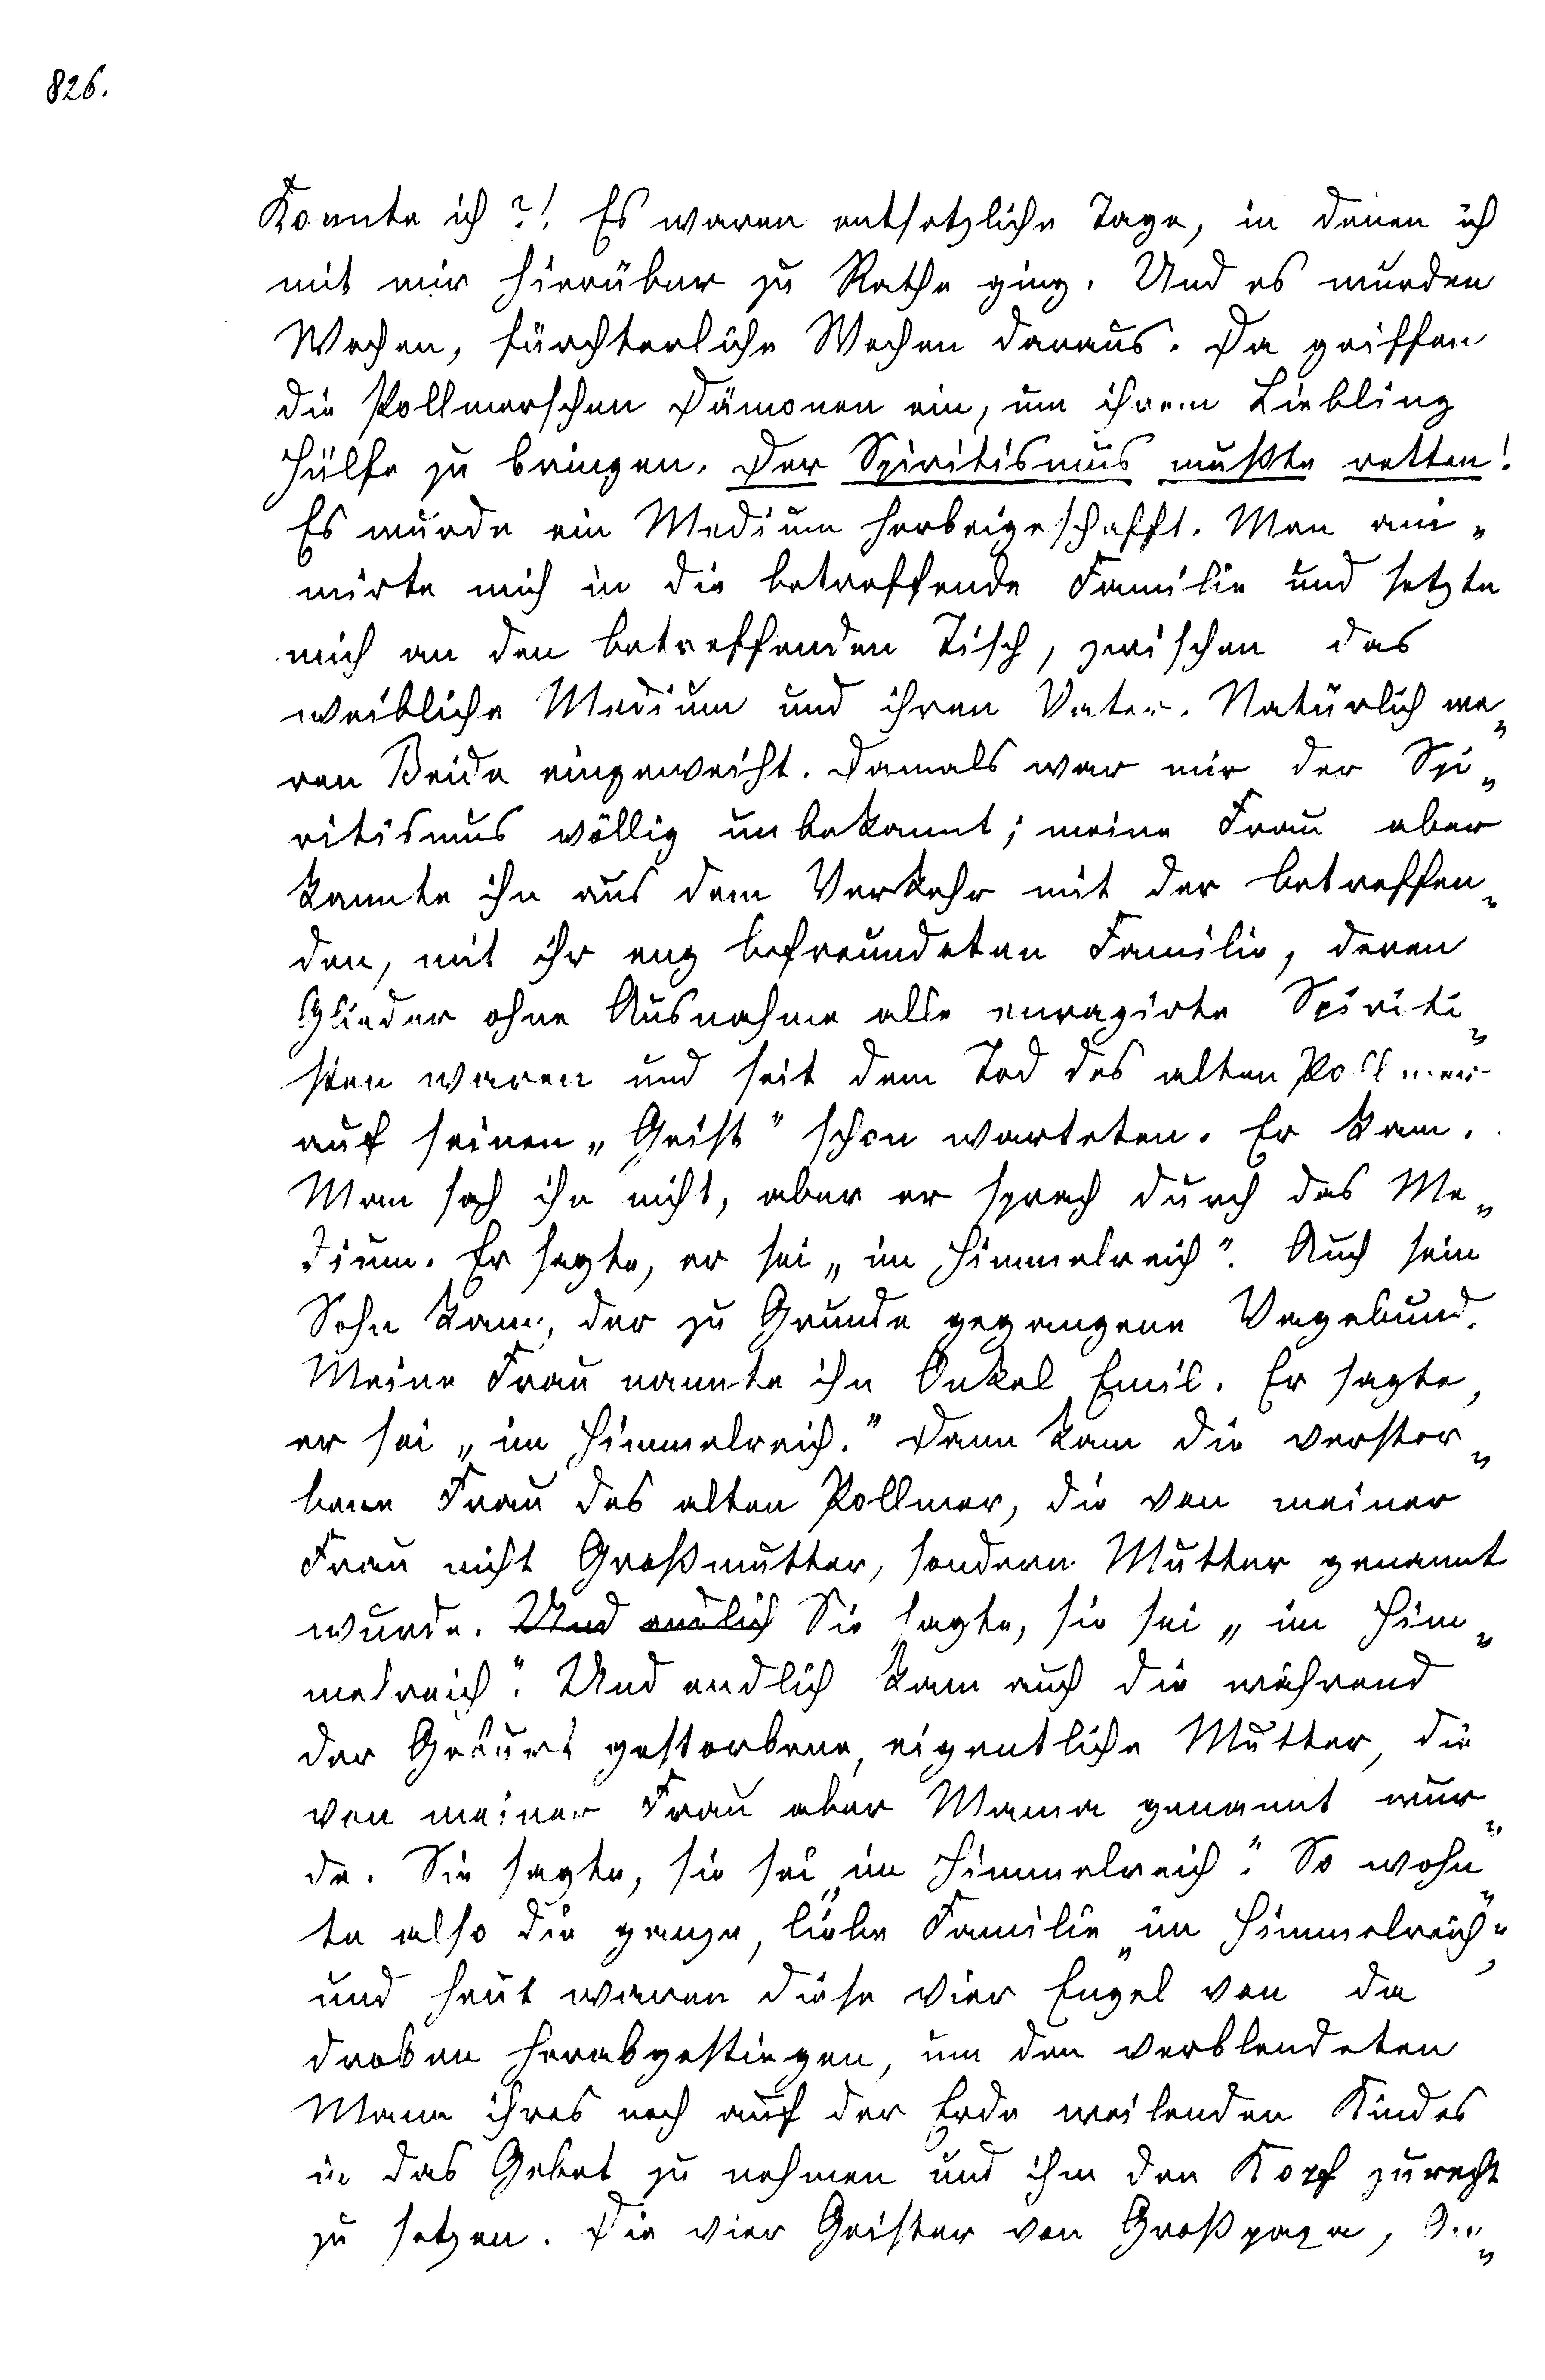 826.
Konnte ich?! Es waren entsetzliche Tage, in denen ich
mit mir hierüber zu Rathe ging. Und es wurden
Wochen, fürchterliche Wochen daraus. Da griffen
die Pollmerschen Dämonen ein, um ihrem Liebling
Hülfe zu bringen. Der Spiritismus mußte retten!
Es wurde ein Medium herbeigeschafft. Man ani„
mirte mich in die betreffende Familie und setzte
mich an den betreffenden Tisch, zwischen das
weibliche Medium und ihren Vater. Natürlich wa„
ren Beide eingeweiht. Damals war mir der Spi„
ritismus völlig unbekannt; meine Frau aber
kannte ihn aus dem Verkehr mit der betreffen„
den, mit ihr eng befreundeten Familie, deren
Glieder ohne Ausnahme alle enragirte Spiriti„
sten waren und seit dem Tod des alten Pollmer
auf seinen „Geist" schon warteten. Er kam.
Man sah ihn nicht, aber er sprach durch das Me„
dium. Er sagte, er sei „im Himmelreich". Auch sein
Sohn kam, der zu Grunde gegangene Vagabund.
Meine Frau nannte ihn Onkel Emil. Er sagte,
er sei „im Himmelreich." Dann kam die verstor„
bene Frau des alten Pollmer, die von meiner
Frau nicht Großmutter, sondern Mutter genannt
wurde. Und endlich Sie sagte, sie sei „im Him„
melreich". Und endlich kam auch die während
der Geburt gestorbene, eigentliche Mutter, die
von meiner Frau aber Mama genannt wur„
de. Sie sagte, sie sei „im Himmelreich". So wohn„
te also die ganze, liebe Familie „im Himmelreich",
und heut waren diese vier Engel von da
droben herabgestiegen, um den verblendeten
Mann ihres noch auf der Erde weilenden Kindes
in das Gebet zu nehmen und ihm den Kopf zurecht
zu setzen. Die vier Geister von Großpapa, On„